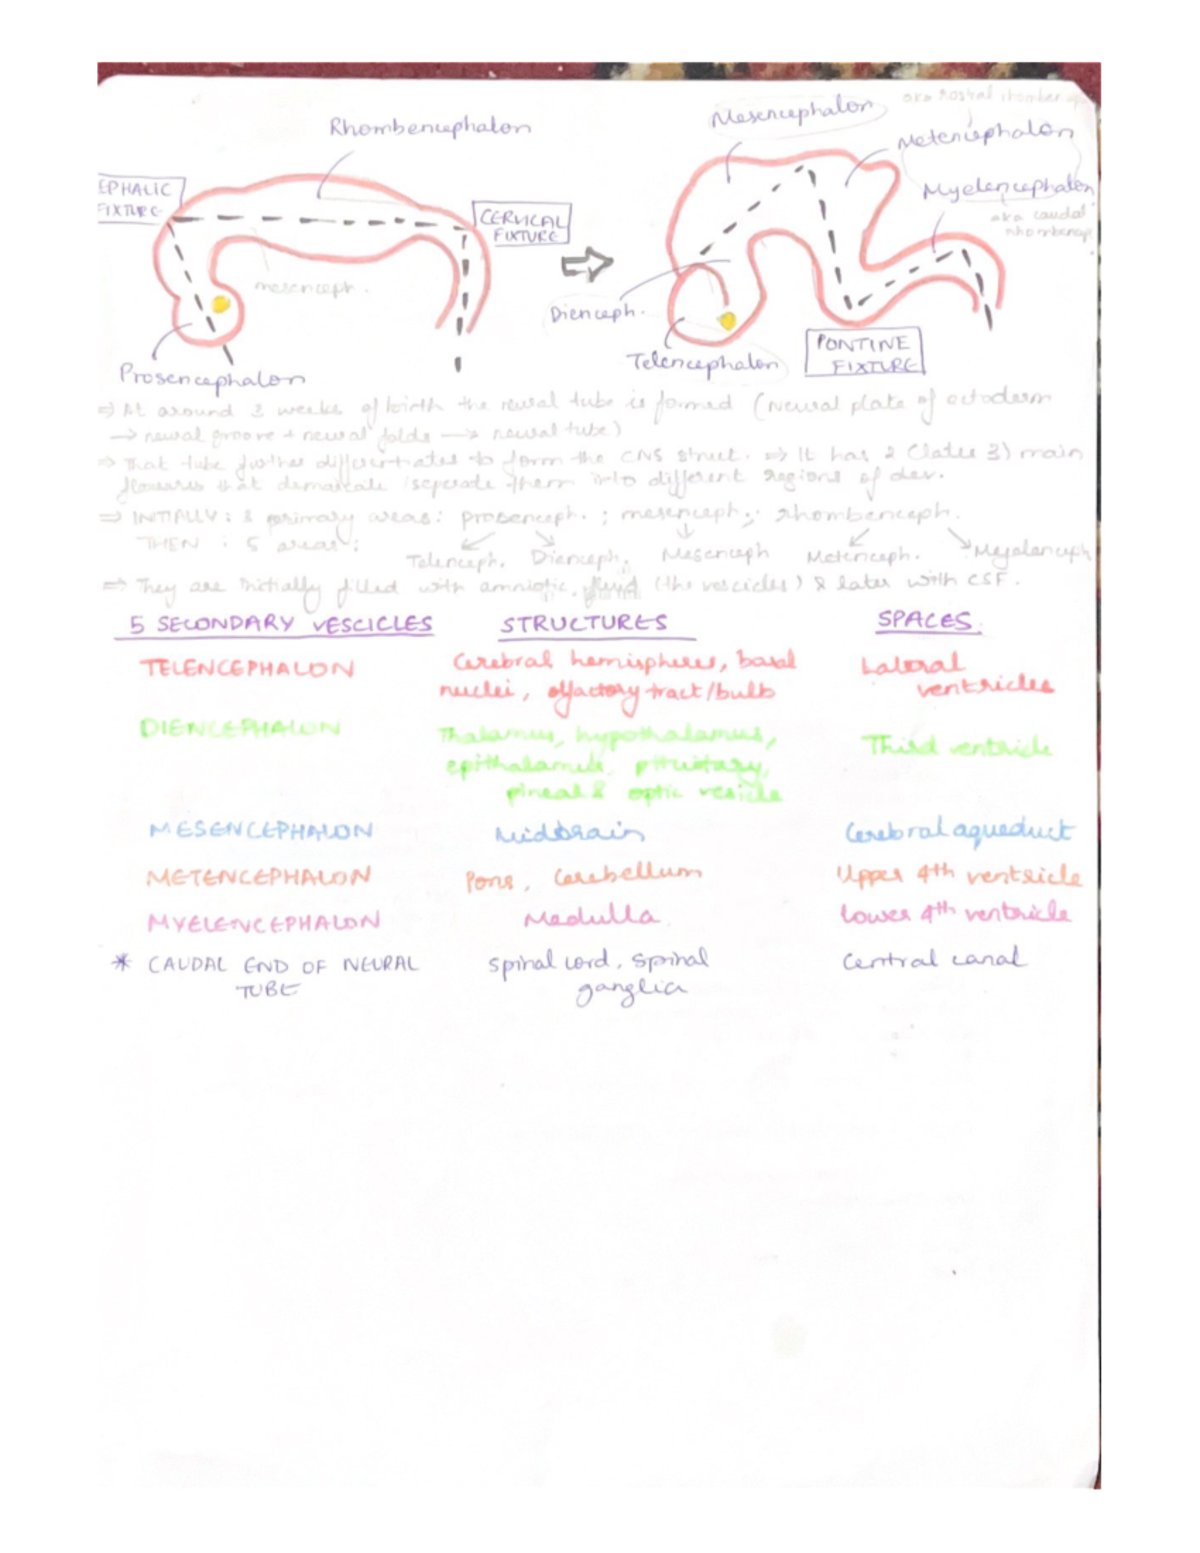 aka rostral rhomben
Rhombencephalon
Mesencephalon
Metencephalon
EPHALIC
FIXTURE
CERVICAL
FIXTURE
Myelencephalon
aka caudal
rhombencep
mesenceph.
Dienceph.
Prosencephalon
Telencephalon
PONTINE
FIXTURE
⇒ At around 3 weeks of birth the neural tube is formed (Neural plate of ectoderm
→ neural groove + neural folds → neural tube)
⇒ That tube further differentiates to form the CNS struct. ⇒ It has 2 (later 3) main
flexures that demarcate / seperate them into different regions of dev.
⇒ INITIALLY: 3 primary areas: prosenceph. ; mesenceph.; rhombenceph.
THEN : 5 areas:
Telenceph. Dienceph. Mesenceph Metenceph. Myelenceph
⇒ They are initially filled with amniotic fluid (the vescicles) & later with CSF.
5 SECONDARY VESCICLES STRUCTURES SPACES
TELENCEPHALON Cerebral hemispheres, basal Lateral
nuclei, olfactory tract/bulb ventricles
DIENCEPHALON Thalamus, hypothalamus, Third ventricle
epithalamus, pituitary,
pineal & optic vesicle
MESENCEPHALON Midbrain Cerebral aqueduct
METENCEPHALON Pons, Cerebellum Upper 4th ventricle
MYELENCEPHALON Medulla Lower 4th ventricle
* CAUDAL END OF NEURAL Spinal cord, Spinal Central canal
TUBE ganglia